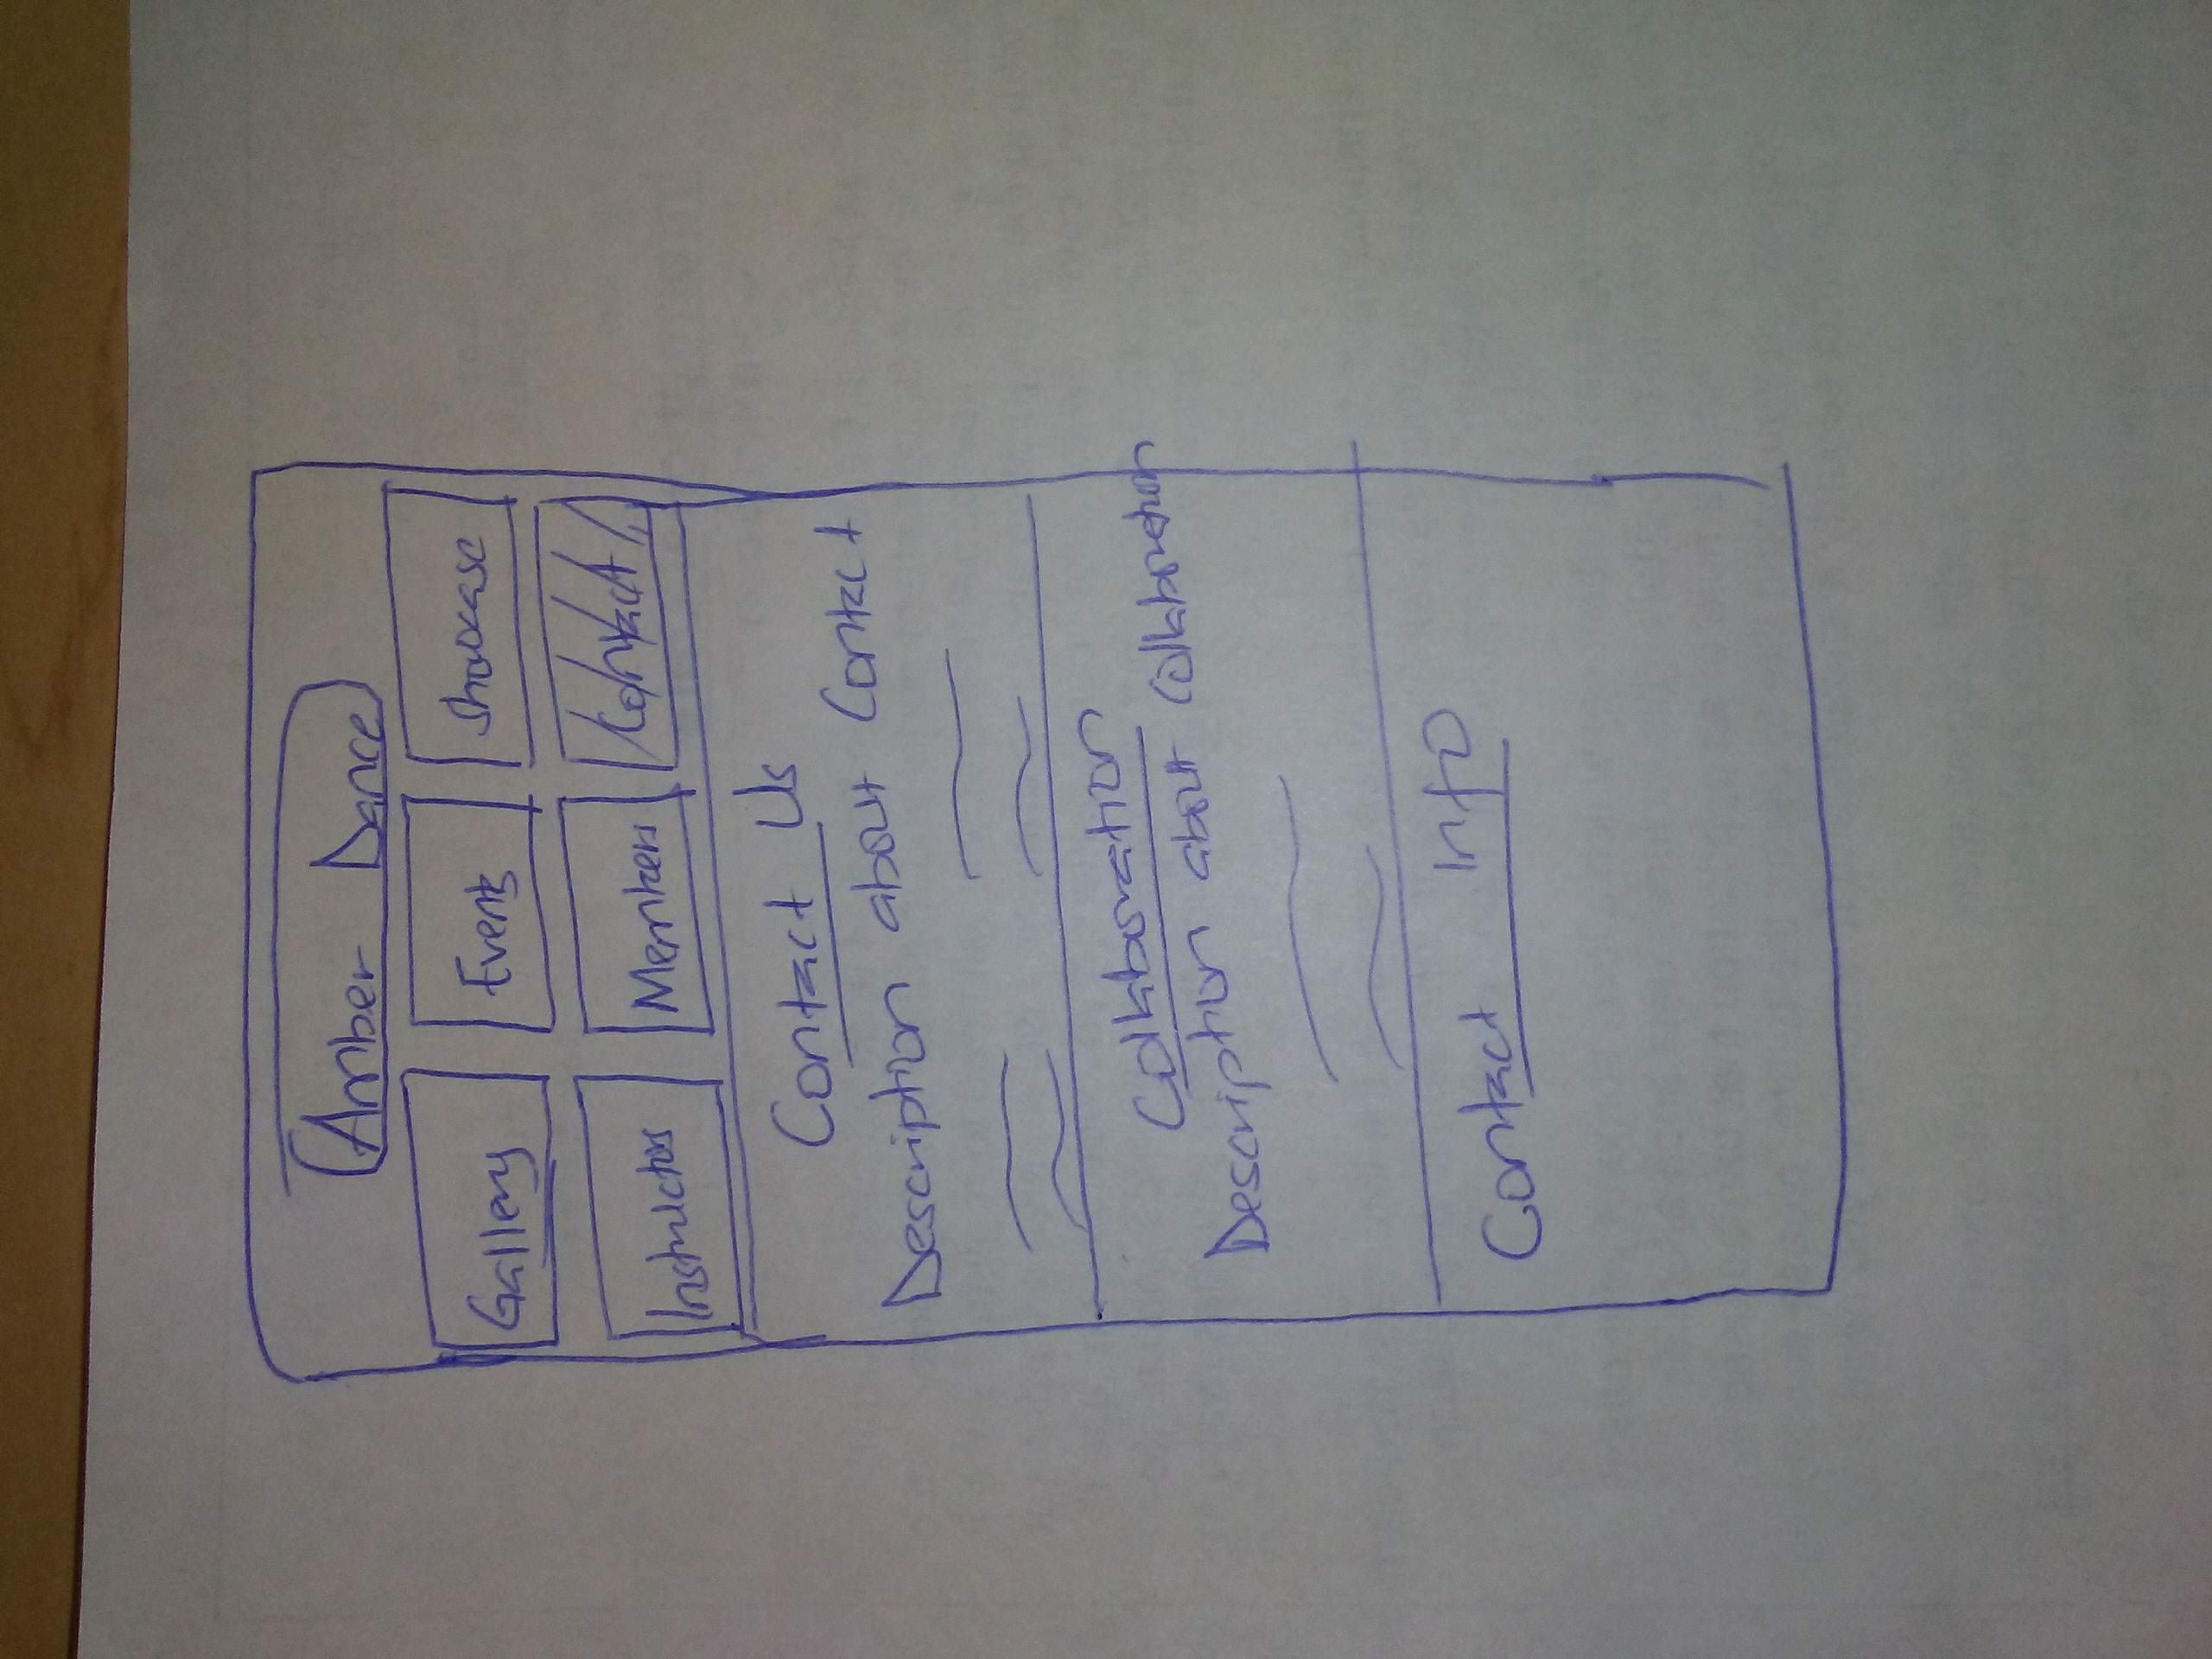 Amber Dance
Gallery Events Showcase
Instructors Members Contact
Contact Us
Description about Contact
Collaboration
Description about Collaboration
Contact Info